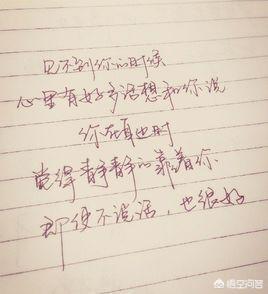 见不到你的时候
心里有好多话想和你说
你在身边时
觉得静静的靠着你
即使不说话，也很好
悟空问答